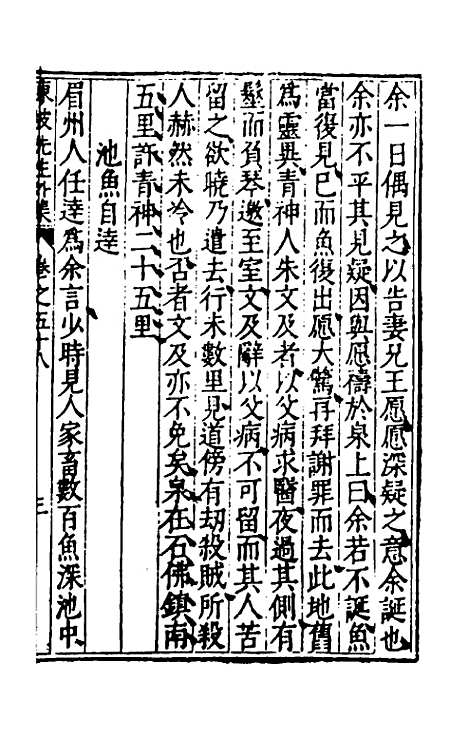 余一日偶見之以告妻兄王愿愿深疑之意余誕也
余亦不平其見疑因與愿禱於泉上曰余若不誕魚
當復見已而魚復出愿大驚再拜謝罪而去此地舊
為靈異青神人朱文及者以父病求醫夜過其側有
髽而負琴邀至室文及辭以父病不可留而其人苦
留之欲曉乃遣去行未數里見道傍有刼殺賊所殺
人赫然未冷也否者文及亦不免矣泉在石佛鎮南
五里許青神二十五里
池魚自逹
眉州人任逹為余言少時見人家畜數百魚深池中
東坡先生外集 卷之五十八 三